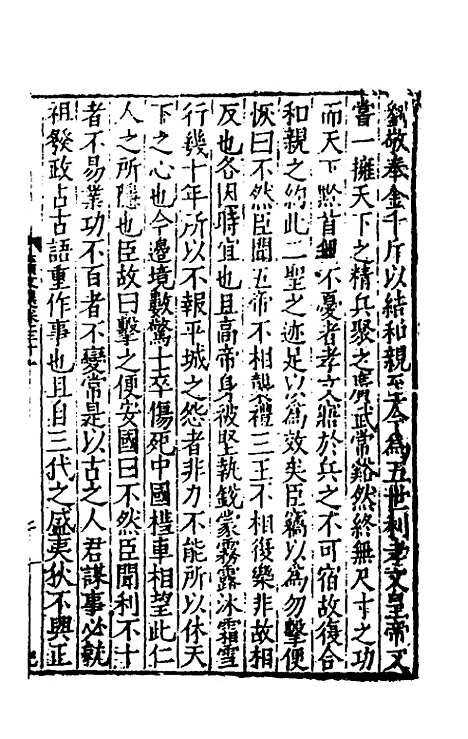 劉敬奉金千斤以結和親至今為五世利孝文皇帝又
嘗一擁天下之精兵聚之廣武常谿然終無尺寸之功
而天下黔首 不憂者孝文寤於兵之不可宿故復合
和親之約此二聖之迹足以為效矣臣竊以為勿擊便
恢曰不然臣聞五帝不相襲禮三王不相復樂非故相
反也各因時宜也且高帝身被堅執銳蒙霧露沐霜雪
行幾十年所以不報平城之怨者非力不能所以休天
下之心也今邊境數驚士卒傷死中國槥車相望此仁
人之所隱也臣故曰擊之便安國曰不然臣聞利不十
者不易業功不百者不變常是以古之人君謀事必就
祖發政占古語重作事也且自三代之盛夷狄不與正